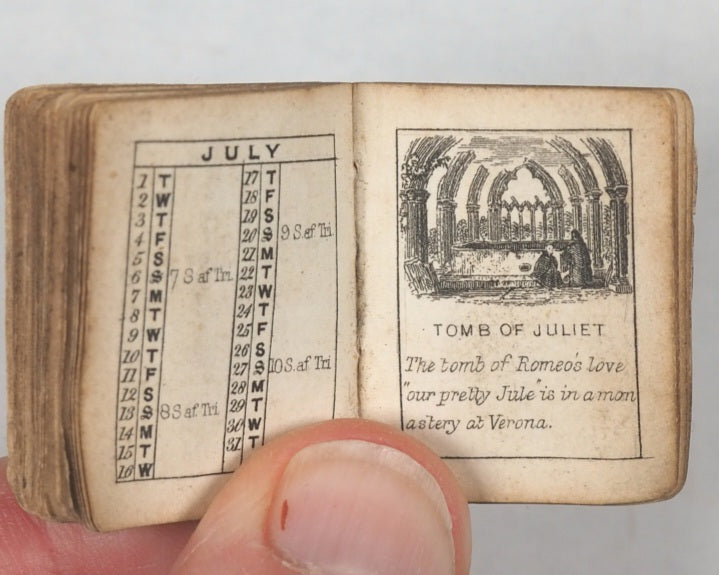 JULY
1 T
2 W
3 T
4 F
5 S
6 S 7 S af Tri.
7 M
8 T
9 W
10 T
11 F
12 S
13 S 8 S af Tri.
14 M
15 T
16 W
17 T
18 F
19 S
20 S 9 S. af Tri.
21 M
22 T
23 W
24 T
25 F
26 S
27 S 10 S. af Tri
28 M
29 T
30 W
31 T
TOMB OF JULIET
The tomb of Romeo's love
"our pretty Jule" is in a mon
astery at Verona.